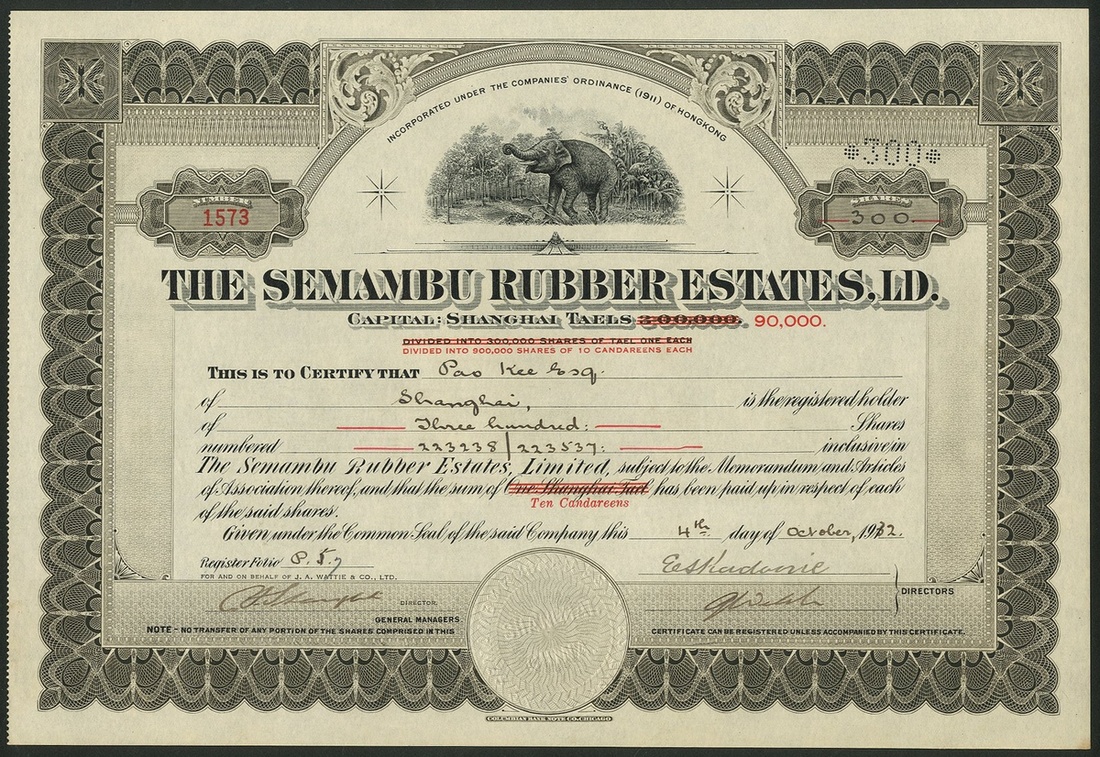 INCORPORATED UNDER THE COMPANIES' ORDINANCE (1911) OF HONGKONG
*300*
NUMBER
1573
SHARES
300.
THE SEMAMBU RUBBER ESTATES, LD.
CAPITAL: SHANGHAI TAELS 300,000. 90,000.
DIVIDED INTO 300,000 SHARES OF TAEL ONE EACH
DIVIDED INTO 900,000 SHARES OF 10 CANDAREENS EACH
THIS IS TO CERTIFY THAT Pao Kee Esq.
of Shanghai, is the registered holder
of Three hundred: Shares
numbered 223238/223537: inclusive in
The Semambu Rubber Estates, Limited, subject to the Memorandum and Articles
of Association thereof, and that the sum of One Shanghai Tael has been paid up in respect of each
Ten Candareens
of the said shares.
Given under the Common Seal of the said Company this 4th day of October, 1932.
Register Folio P. 57
FOR AND ON BEHALF OF J. A. WATTIE & CO., LTD.
DIRECTOR.
GENERAL MANAGERS
DIRECTORS
NOTE - NO TRANSFER OF ANY PORTION OF THE SHARES COMPRISED IN THIS CERTIFICATE CAN BE REGISTERED UNLESS ACCOMPANIED BY THIS CERTIFICATE.
COLUMBIAN BANK NOTE CO. CHICAGO